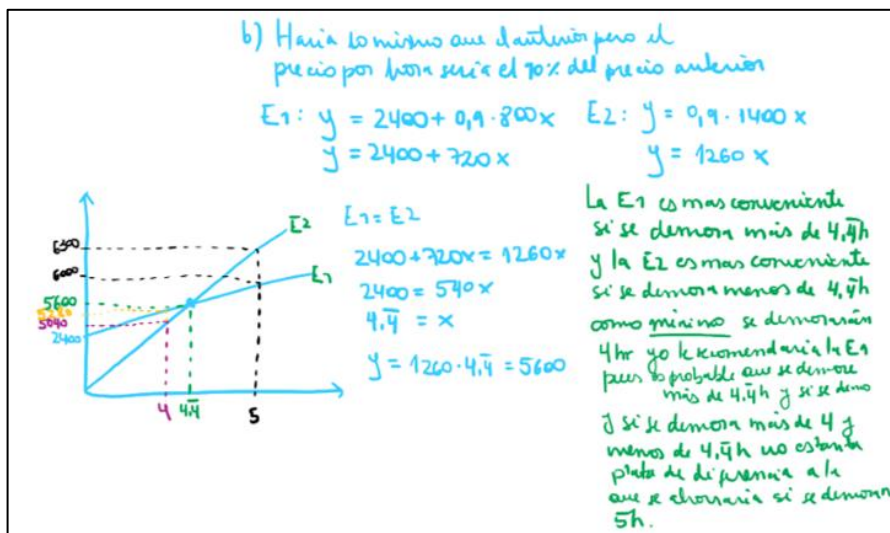 b) Haria lo mismo que el anterior pero el
precio por hora seria el 90% del precio anterior
E1: y = 2400 + 0,9·800x
y = 2400 + 720x
E2: y = 0,9·1400x
y = 1260x
E2
E1
6300
6000
5600
5280
5040
2400
4
4,4̄
5
E1 = E2
2400+720x = 1260x
2400 = 540x
4,4̄ = x
y = 1260·4,4̄ = 5600
La E1 es mas conveniente
si se demora más de 4,4̄h
y la E2 es mas conveniente
si se demora menos de 4,4̄h
como mínimo se demorarán
4hr yo le recomendaria la E1
pues es probable que se demore
más de 4,4̄h y si se demo
y si se demora más de 4 y
menos de 4,4̄h no es tanta
plata de diferencia a la
que se ahorraria si se demoran
5h.